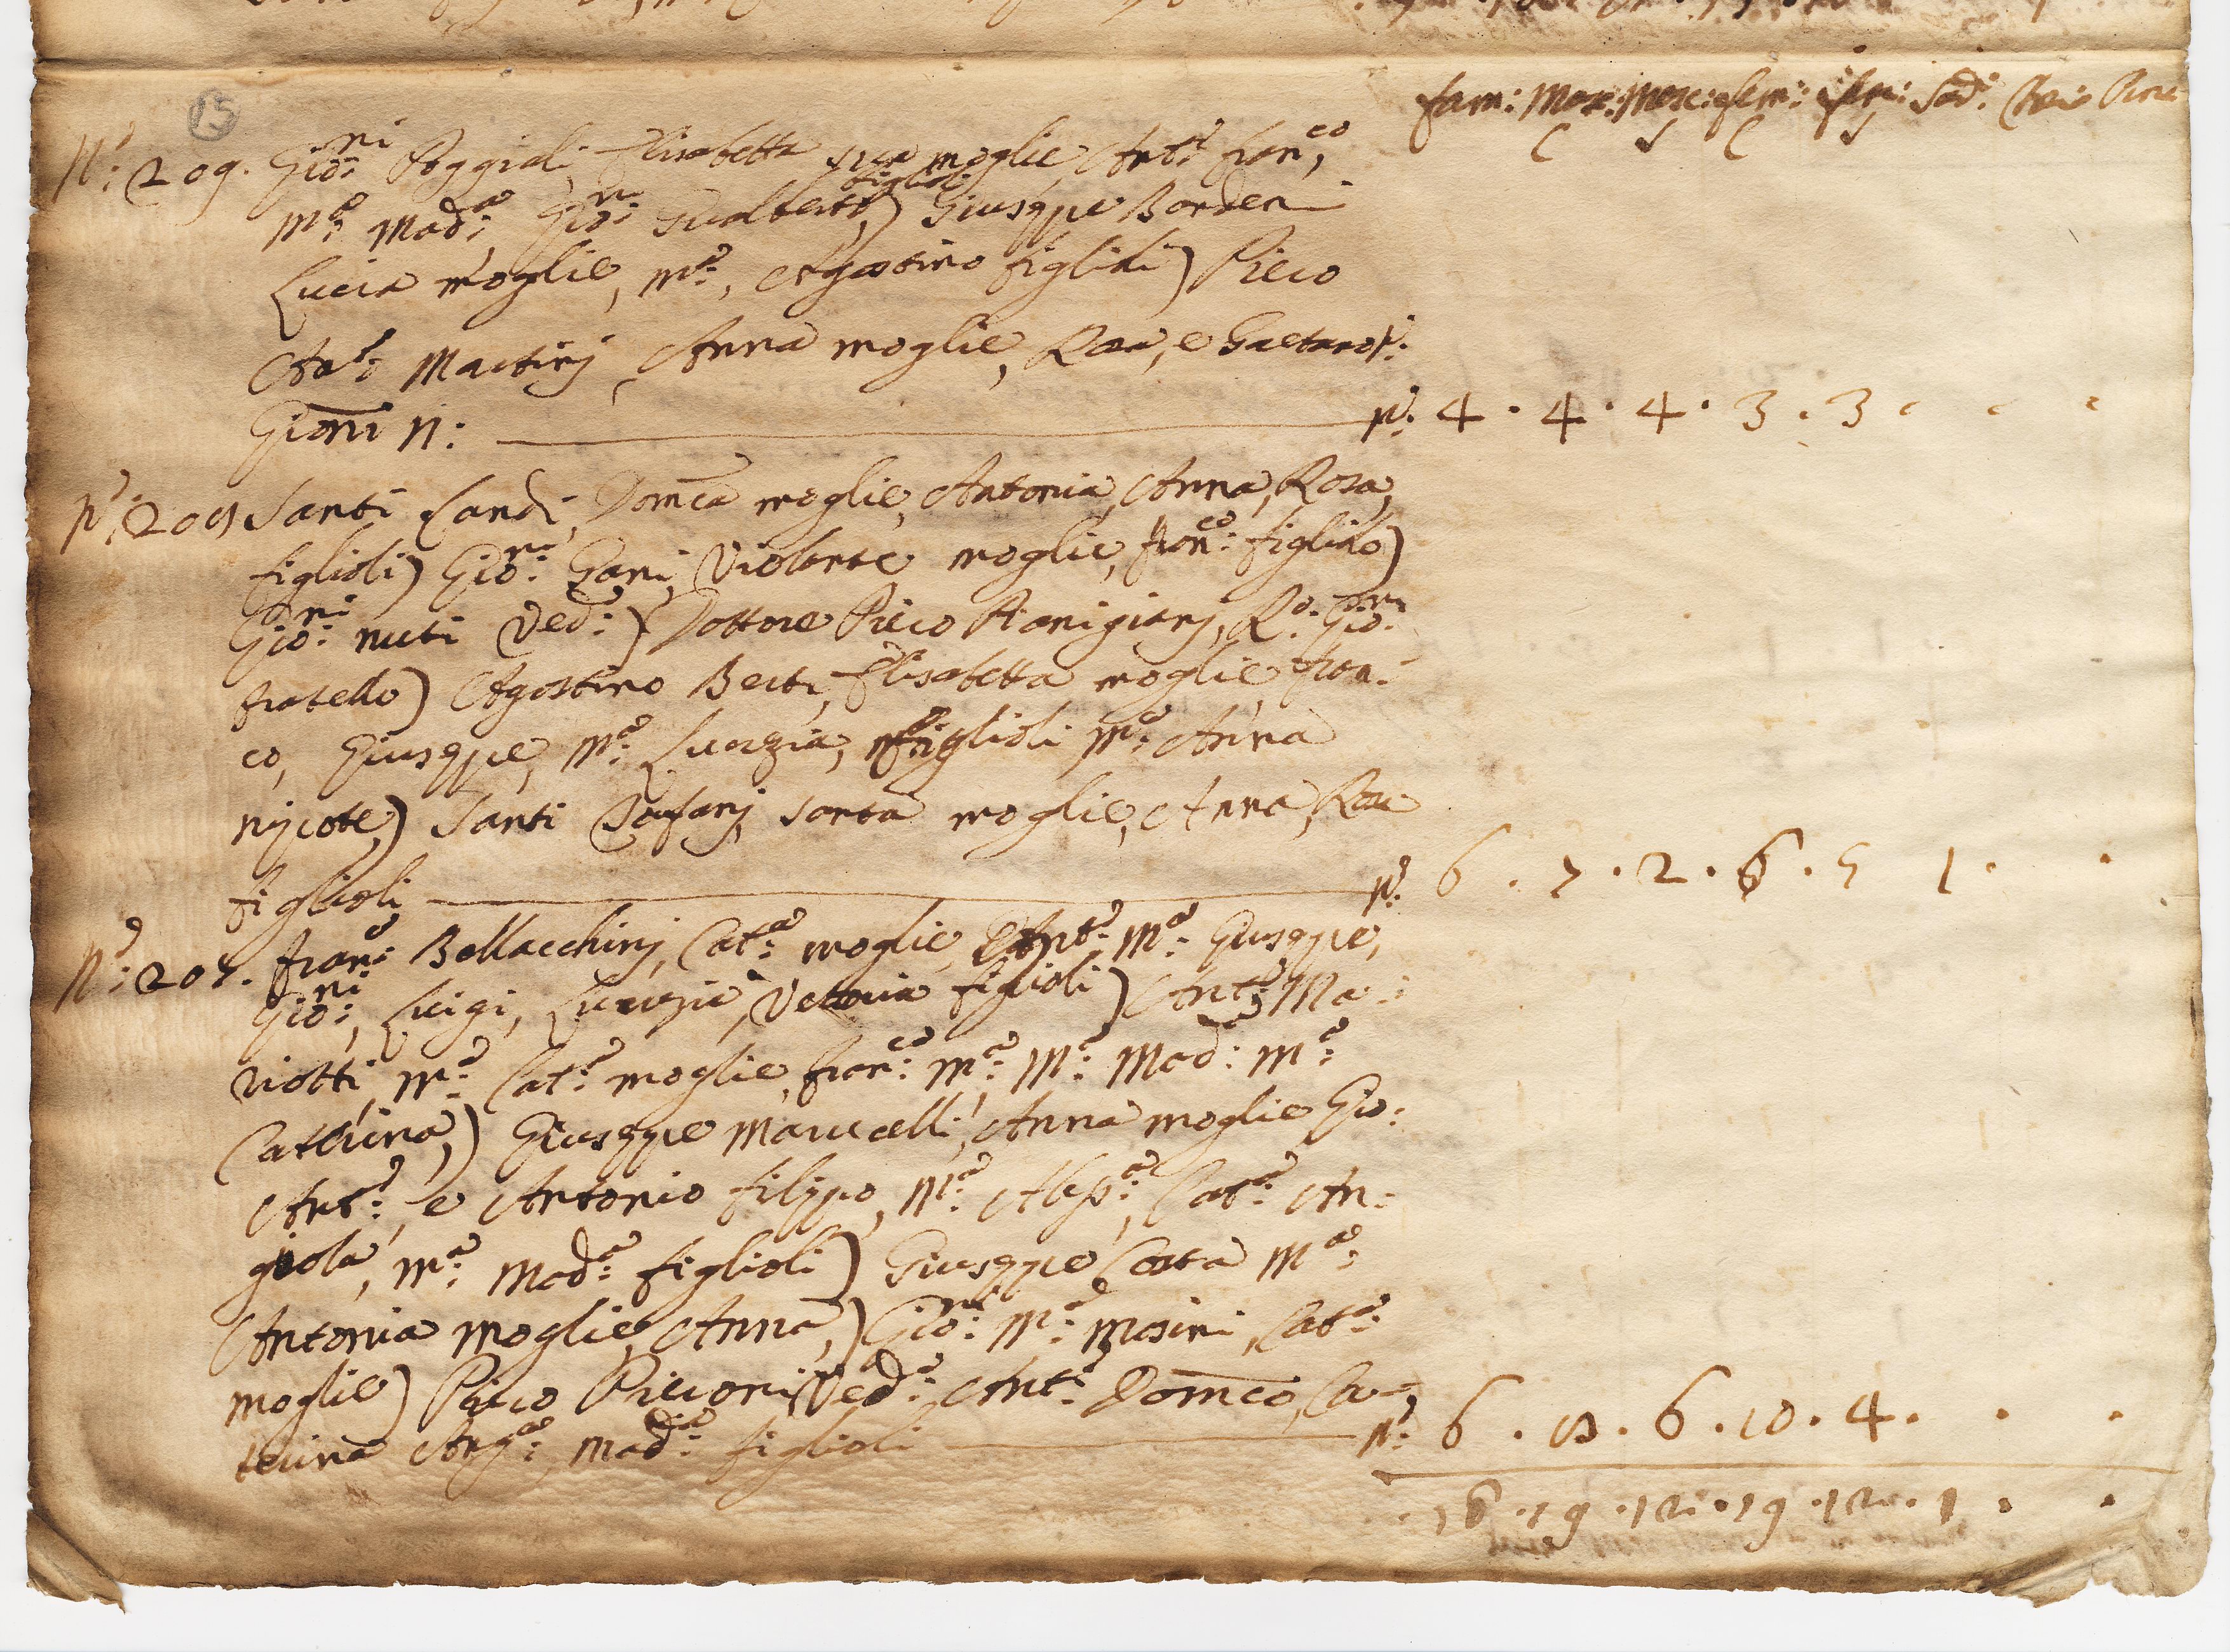 fam: Mas: Masc: fem: fem: Sad:
C S C S
15
N.º: 209. Gio:ni Poggiali, Elisabetta sua moglie, Ant:º Fran:co,
M:ª Mad:ª, Gio:ni Gualberto, figlioli) Giuseppe Bardeni
Lucia moglie, M:ª, Agostino figlioli) Pietro
Ant:º Martinj, Anna moglie, Rosa, e Gaetano
Gionni N: nº: 4 · 4 · 4 · 3 · 3
Nº: 209 Santi Landi, Domca moglie, Antonia, Anna, Rosa,
figlioli) Gio:ni Gani, Violante moglie, Fran:co figliolo)
Gio:ni nuti Ved:) Dottore Pietro Parigianj, R:º Gio:ni
fratello) Agostino Berti, Elisabetta moglie, Fran:
co, Giuseppe, M:ª Lucrezia, figlioli, M:ª Anna
nipote) Santi Bufanj, Santa moglie, Anna, Rosa
figlioli nº: 6 · 7 · 2 · 6 · 5 1 ·
Nº: 207. Fran:co Bellacchinj, Cat:ª moglie, Ant:º M:ª Giuseppe,
Gio:ni, Luigi, Lucrezia, Vettoria figlioli) Ant:º Ma:
riotti, M:ª Cat:ª moglie, Fran:co M:ª, M:ª Mad: M:ª
Catterina,) Giuseppe Marucelli, Anna moglie Gio:
Ant:º, e Antonio Filippo, M:ª Aless:ª, Cat:ª An:
giola, M:ª Mad:ª figlioli) Giuseppe Costa M:ª
Antonia moglie, Anna,) Gio:ni M:ª Masini, Cat:ª
moglie) Pietro Pieroni Ved:º Ant:º Domco, Ca=
terina Ang:ª, Mad:ª figlioli nº: 6 · 8 · 6 · 10 · 4 ·
· 16 · 19 · 12 · 19 · 12 · 1